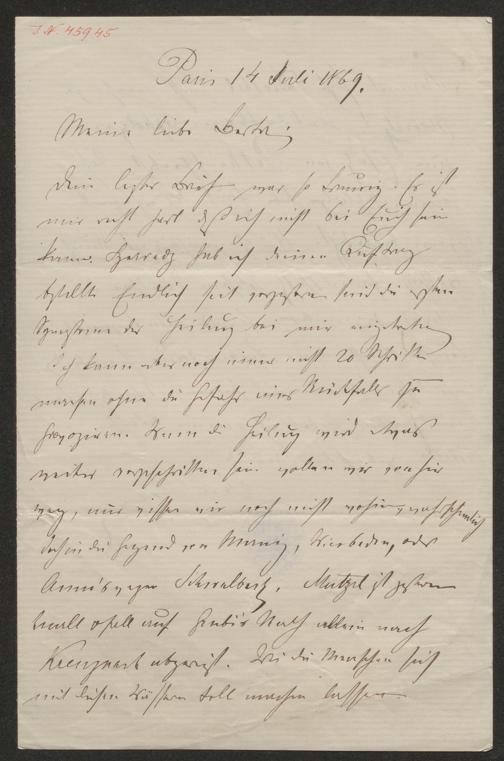 I.N. 45945
Paris 14 Juli 1869.
Meine liebe Berta;
Dein letzter Brief war so traurig. Es ist
mir recht hart daß ich nicht bei Euch sein
kann. hab ich deinen Auftrag
bestellt. Endlich seit vorgestern sind die ersten
Symptome der Heilung bei mir eingetreten
Ich kann aber noch immer nicht 20 Schritte
machen ohne die Gefahr eines Rückfalls zu
provoziren. Wenn die Heilung wird etwas
weiter vorgeschritten sein wollen wir von hier
weg, nur wissen wir noch nicht wohin, wahrscheinlich
in die Gegend von Mainz, Wiesbaden, oder
Schwalbach. Mutzel ist gestern
auf Rath allein nach
Kreuznach abgereist. Wie die Menschen sich
mit diesen Wässern toll machen lassen